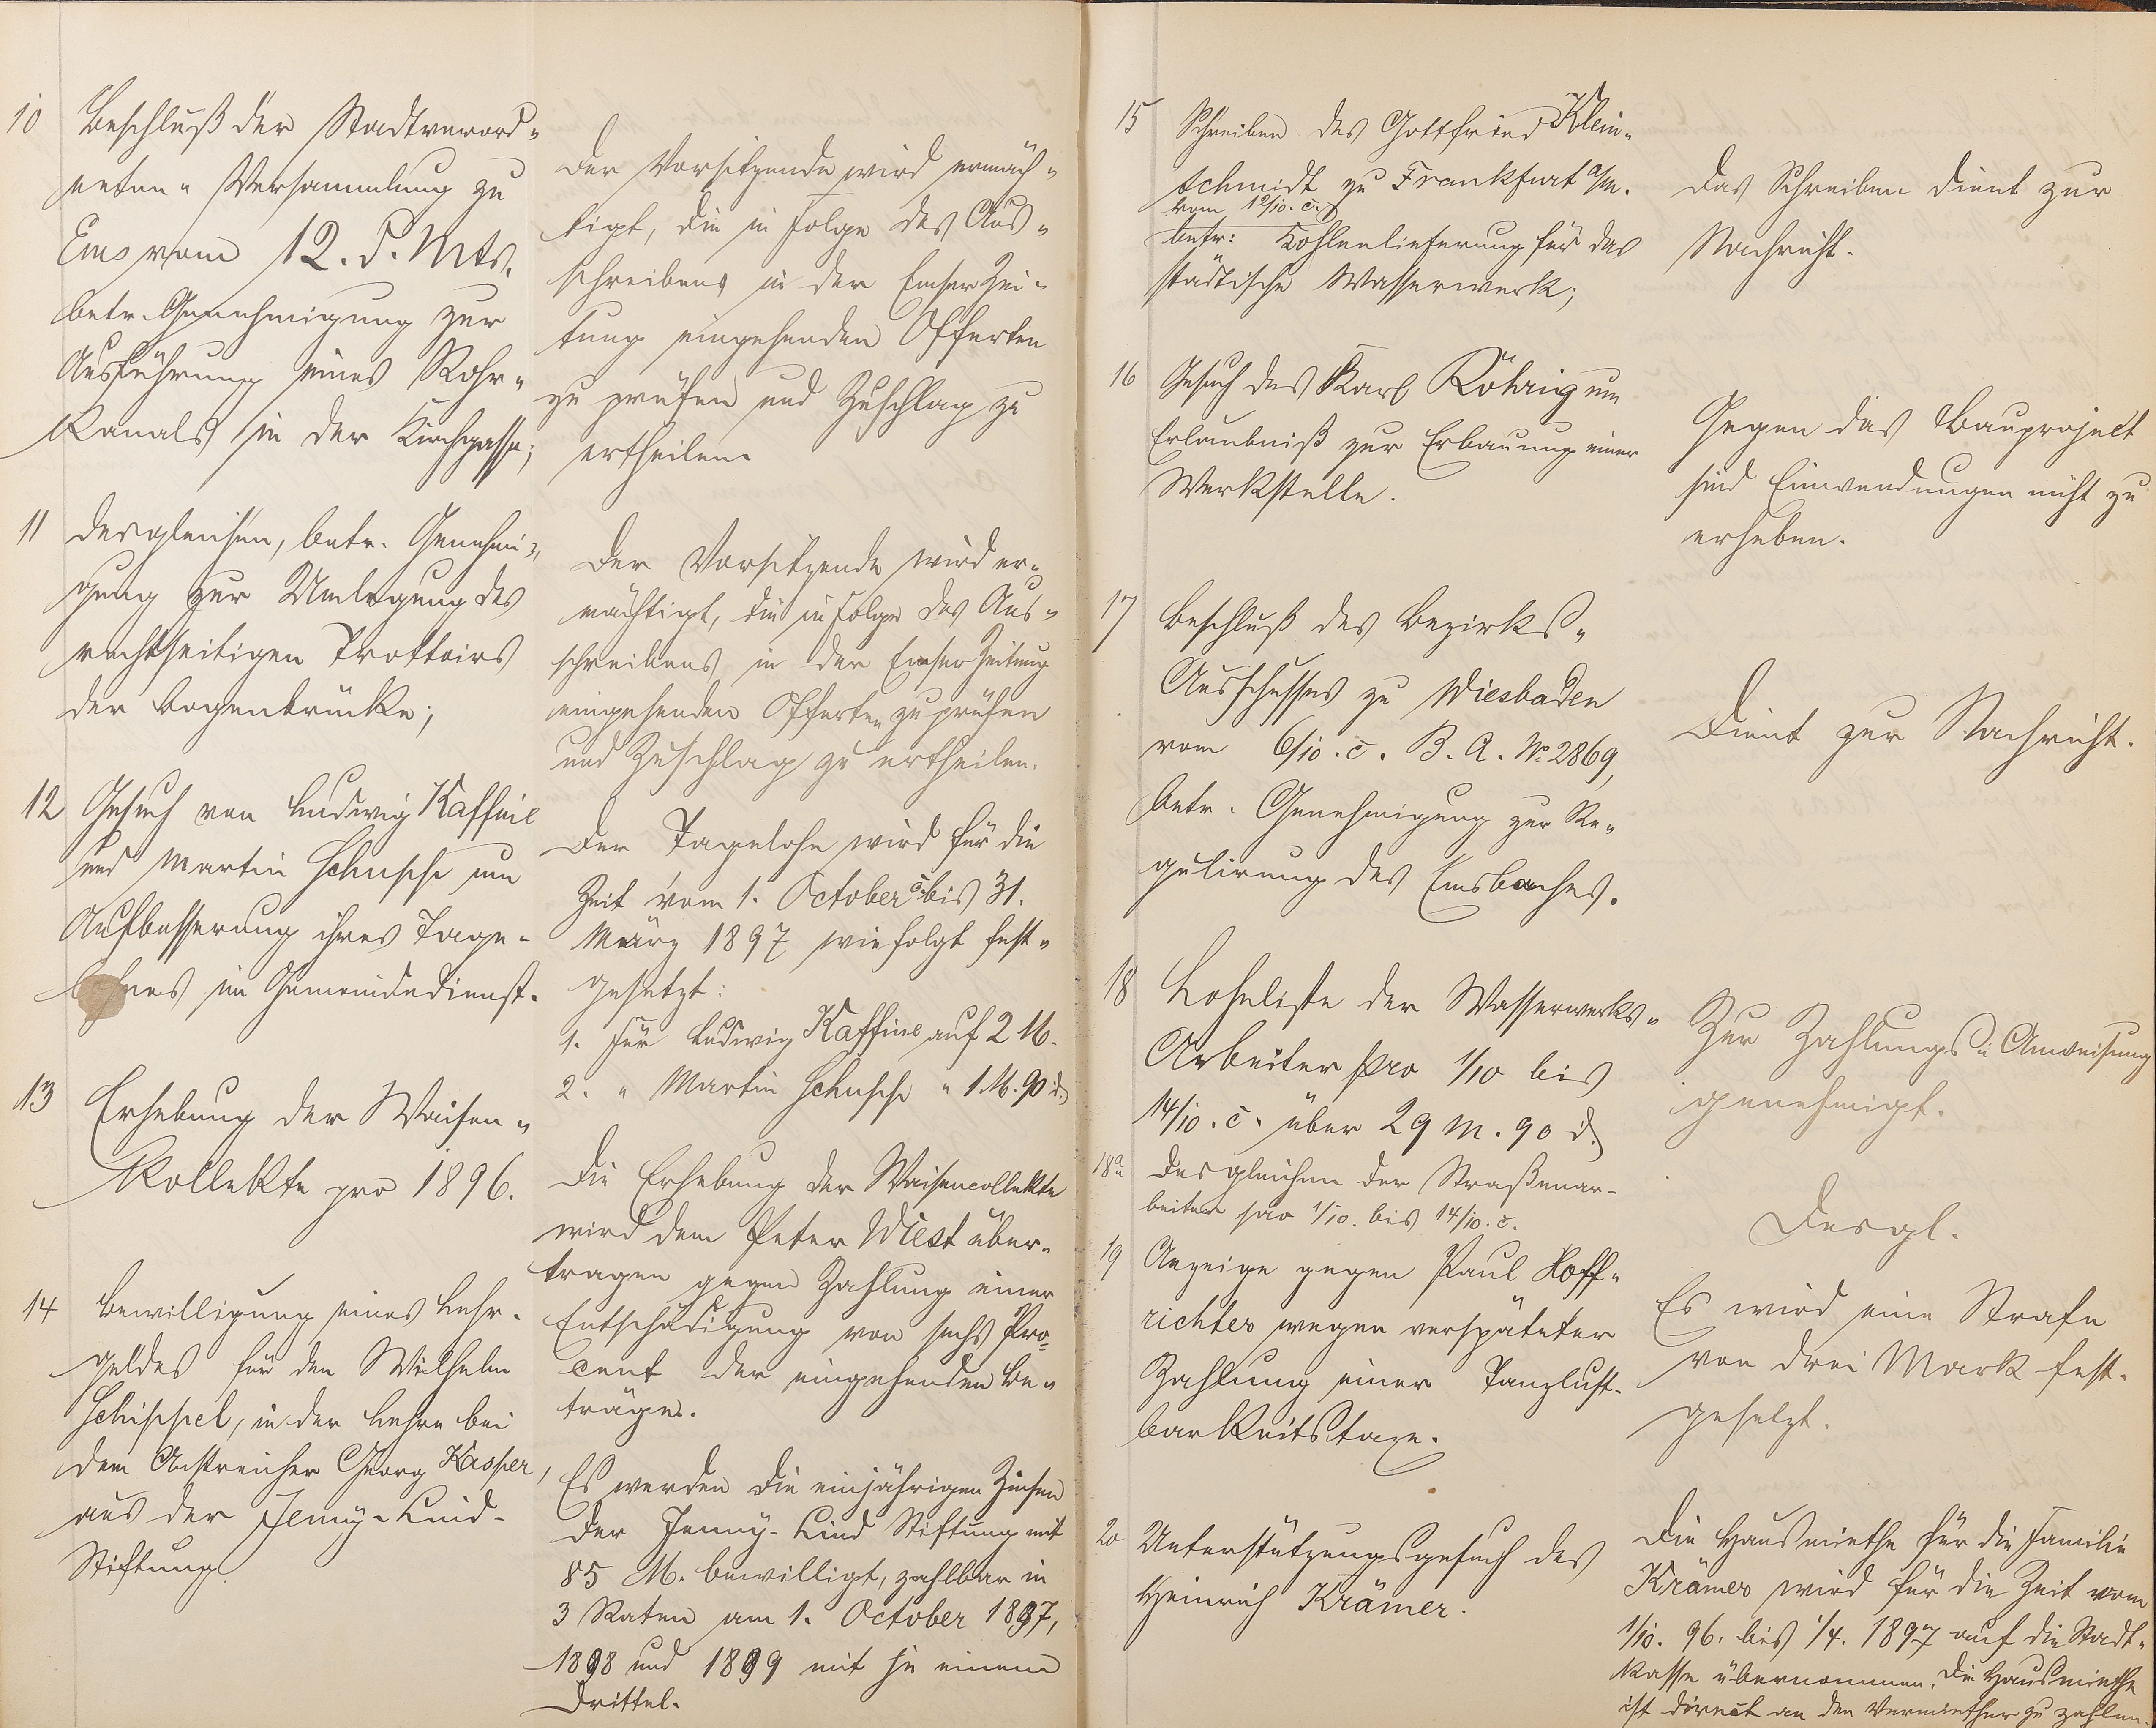 10 Beschluß der Stadtverord-
neten-Versammlung zu
Ems vom 12. d. Mts.
betr. Genehmigung zur
Ausführung eines Rohr-
kanals in der Kirchgasse;
Der Vorsitzende wird ermäch-
tigt, die in Folge des Aus-
schreibens in der Emser Zei-
tung eingehenden Offerten
zu prüfen und Zuschlag zu
ertheilen.
11 desgleichen, betr. Genehmi-
gung zur Umlegung des
rechtseitigen Trottoirs
der Bogenbrücke;
Der Vorsitzende wird er-
mächtigt, die in Folge des Aus-
schreibens in der Emser Zeitung
eingehenden Offerten zu prüfen
und Zuschlag zu ertheilen.
12 Gesuch von Ludwig Kaffine
und Martin Schupp um
Aufbesserung ihres Tage-
lohnes im Gemeindedienst.
Der Tagelohn wird für die
Zeit vom 1. October c. bis 31.
März 1897 wie folgt fest-
gesetzt:
1. Für Ludwig Kaffine auf 2 M.
2. " Martin " 1 M. 90 d.
13 Erhebung der Waisen-
kollekte pro 1896.
Die Erhebung der Waisencollekte
wird dem Peter Wiest über-
tragen gegen Zahlung einer
Entschädigung von sechs Pro-
cent der eingehenden Be-
träge.
14 Bewilligung eines Lehr-
geldes für den Wilhelm
Schippel, in der Lehre bei
dem Anstreicher Georg Kasper,
aus der Jenny-Lind-
Stiftung.
Es werden die einjährigen Zinsen
der Jenny-Lind Stiftung mit
85 M. bewilligt, zahlbar in
3 Raten am 1. October 1897,
1898 und 1899 mit je einem
Drittel.
15 Schreiben des Gottfried Klein-
schmidt zu Frankfurt a/M.
vom 12/10. c.
betr: Kohlenlieferung für das
städtische Wasserwerk;
Das Schreiben dient zur
Nachricht.
16 Gesuch des Karl Röhrig um
Erlaubniß zur Erbauung einer
Werkstelle.
Gegen das Bauproject
sind Einwendungen nicht zu
erheben.
17 Beschluß des Bezirks-
Ausschusses zu Wiesbaden
vom 6/10. c. B. A. No. 2869,
betr. Genehmigung zur Re-
gulirung des Emsbaches.
Dient zur Nachricht.
18 Lohnliste der Wasserwerks-
Arbeiter pro 1/10 bis
14/10. c. über 29 M. 90 d.
Zur Zahlungs-Anweisung
genehmigt.
18a Desgleichen der Straßenar-
beiter pro 1/10. bis 14/10. c.
Desgl.
19 Anzeige gegen Paul Hoff-
richter wegen verspäteter
Zahlung einer Tanzlust-
barkeitstaxe.
Es wird eine Strafe
von drei Mark fest-
gesetzt.
20 Unterstützungsgesuch des
Heinrich Krämer.
Die Hausmiethe für die Familie
Krämer wird für die Zeit vom
1/10. 96. bis 1/4. 1897 auf die Stadt-
kasse übernommen. Die Hausmiethe
ist direct an den Vermiether zu zahlen.